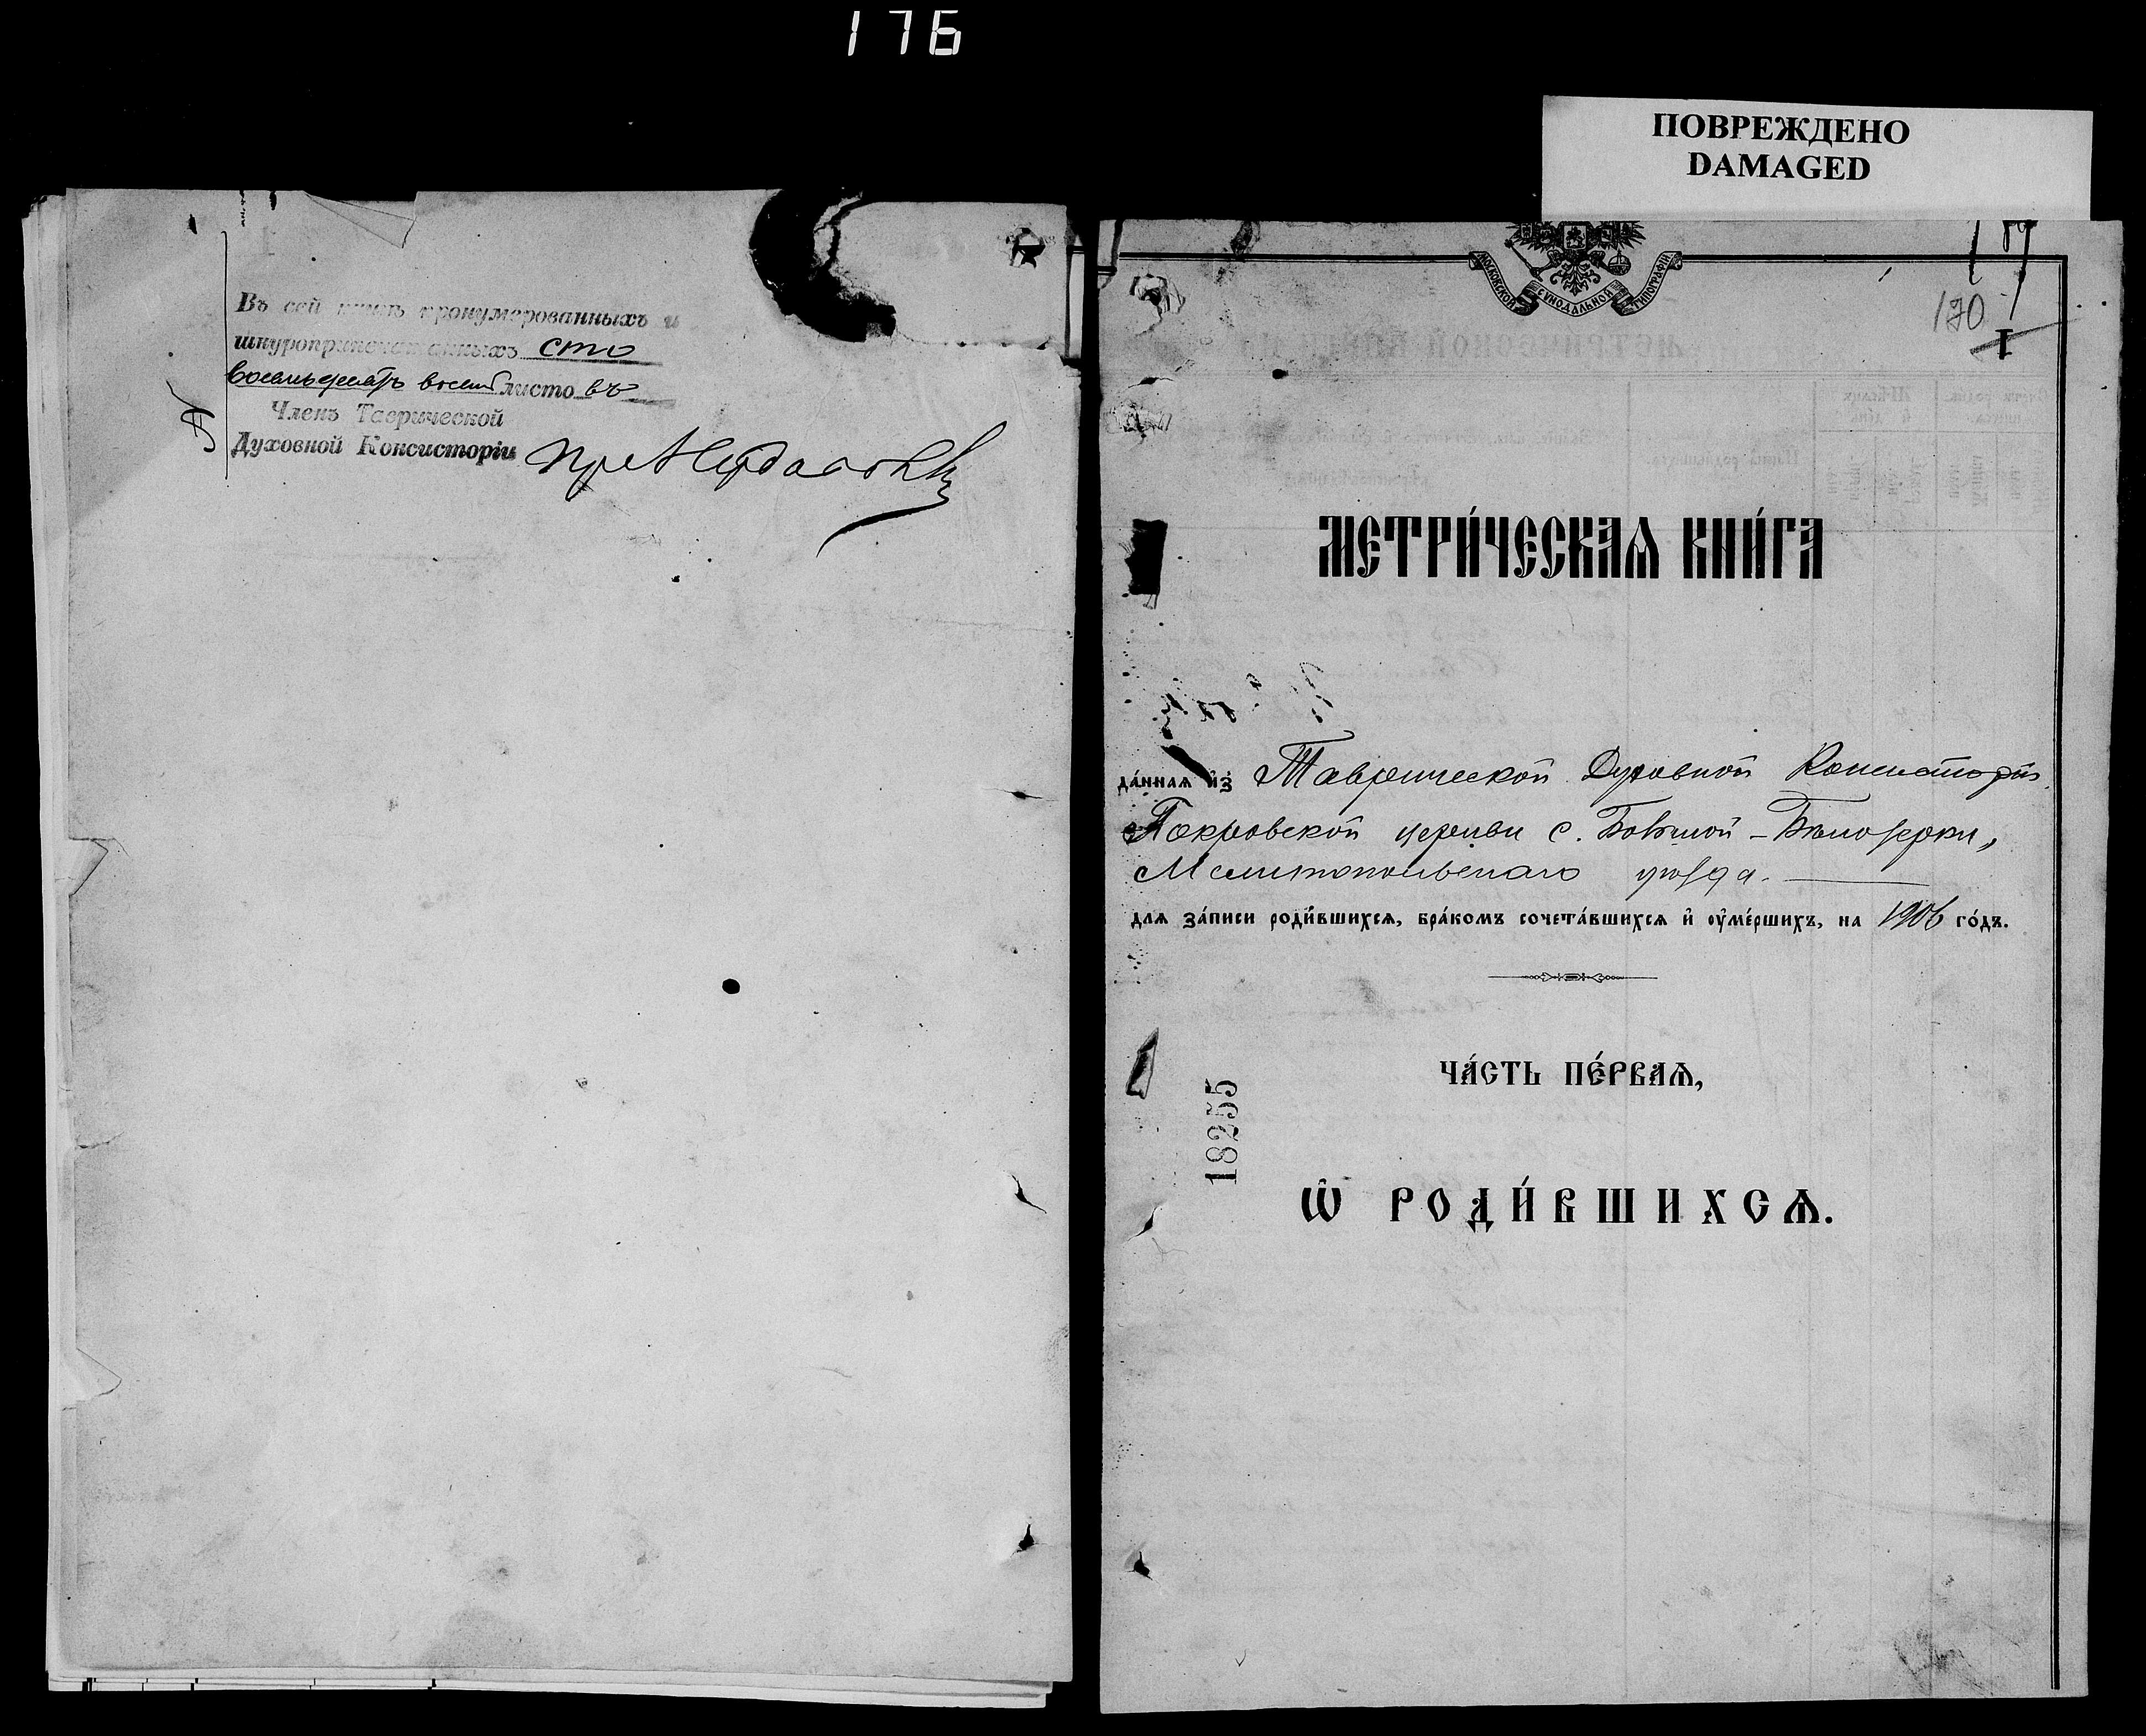 176
ПОВРЕЖДЕНО
DAMAGED
Въ сей книгѣ пронумерованныхъ и
шнуроприпечатанныхъ сто
восемьдесятъ восемь листовъ
Членъ Таврической
Духовной Консисторіи
МОСКОВСКОЙ СѴНОДАЛЬНОЙ ТИПОГРАФІИ
170
I
МЕТРИ́ЧЕСКАѦ КНИ́ГА
да́ннаѧ и҆з̾ Таврической Духовной Консисторіи
Покровской церкви с. Большой-Бѣлозерки,
Мелитопольскаго уѣзда.
длѧ за́писи роди́вшихсѧ, бра́комъ сочета́вшихсѧ и҆ ѹ҆ме́ршихъ, на 1906 го́дъ.
ЧА́СТЬ ПЕ́РВАѦ,
18255
Ѽ РОДИ́ВШИХСѦ.